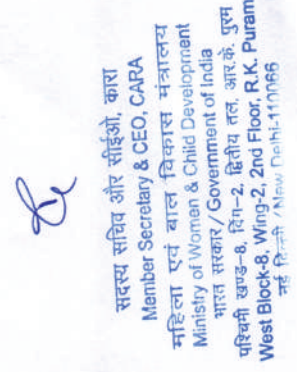 सदस्य सचिव और सीईओ, कारा
Member Secretary & CEO, CARA
महिला एवं बाल विकास मंत्रालय
Ministry of Women & Child Development
भारत सरकार/Government of India
पश्चिमी खण्ड–8, विंग–2, द्वितीय तल, आर.के. पुरम
West Block-8, Wing-2, 2nd Floor, R.K. Puram
नई दिल्ली /New Delhi-110066